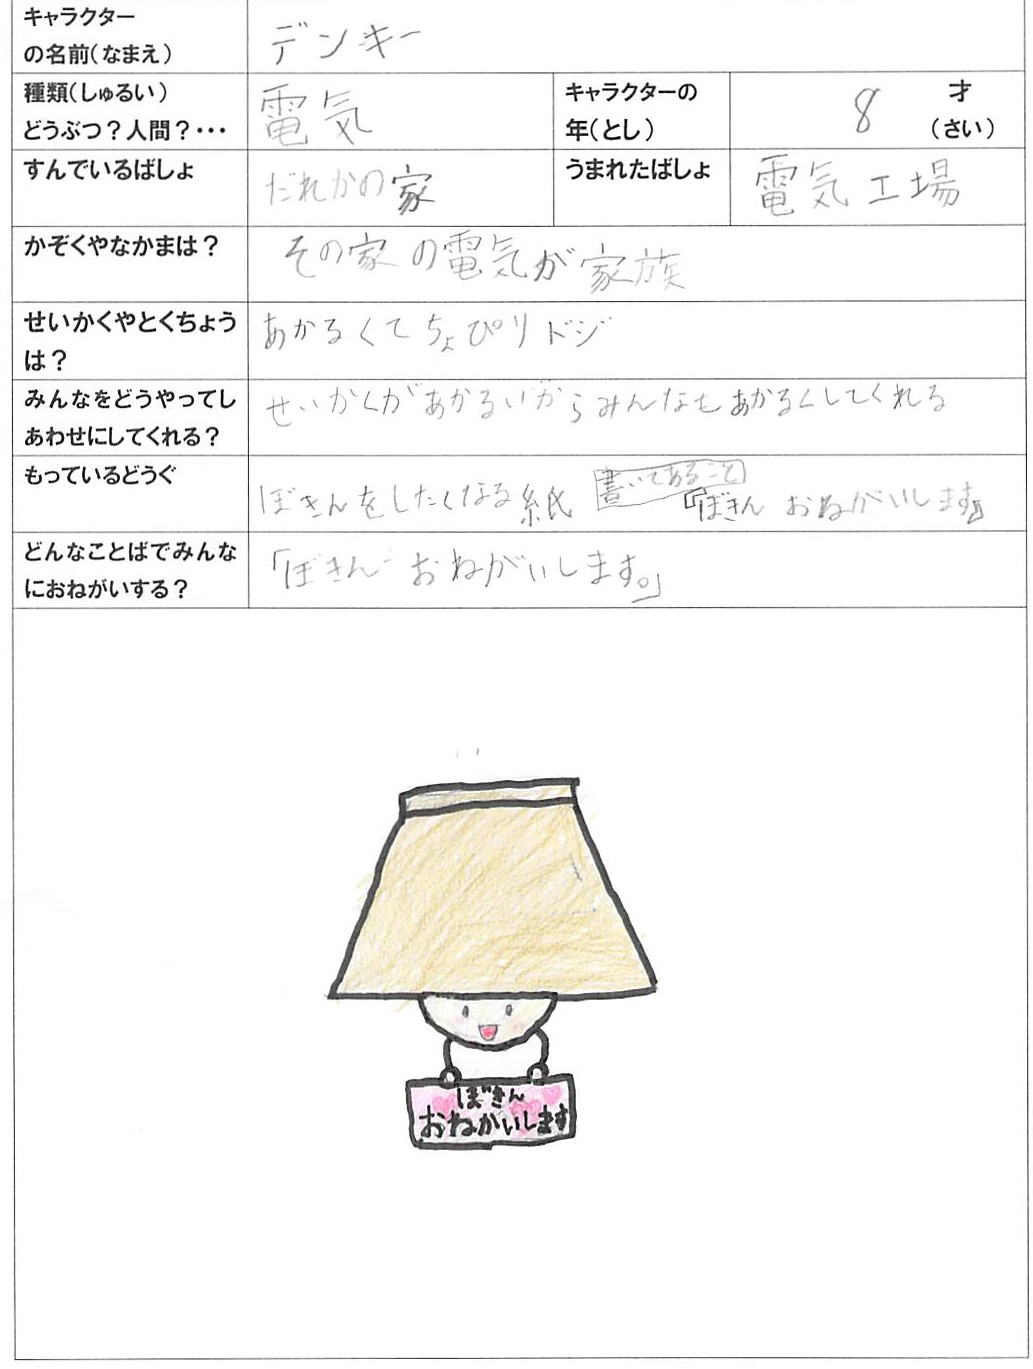 キャラクター
の名前(なまえ)
デンキー
種類(しゅるい)
どうぶつ?人間?・・・
電気
キャラクターの
年(とし)
8
才
(さい)
すんでいるばしょ
だれかの家
うまれたばしょ
電気工場
かぞくやなかまは?
その家の電気が家族
せいかくやとくちょう
は?
あかるくてちょぴりドジ
みんなをどうやってし
あわせにしてくれる?
せいかくがあかるいからみんなもあかるくしてくれる
もっているどうぐ
ぼきんをしたくなる紙
書いてあること
『ぼきん おねがいします』
どんなことばでみんな
におねがいする?
「ぼきん おねがいします。」
ぼきん
おねがいします